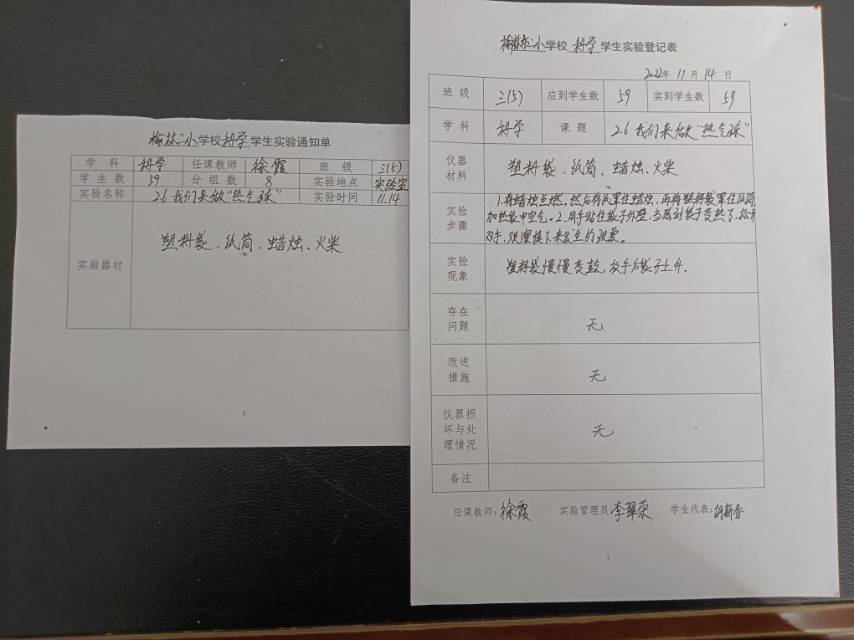 榆林二小学校科学学生实验通知单
学 科 科学 任课教师 徐霞 班 级 三(5)
学 生 数 59 分 组 数 8 实验地点 实验室
实验名称 2.6 我们来做"热气球" 实验时间 11.14
实验器材 塑料袋、纸筒、蜡烛、火柴
1
学校 科学 学生实验登记表
2022年 11 月 14 日
班 级 三(5) 应到学生数 59 实到学生数 59
学 科 科学 课 题 2.6 我们来做"热气球"
仪器
材料
塑料袋、纸筒、蜡烛、火柴
实验
步骤
1.将蜡烛点燃,然后将纸罩住蜡烛,再将塑料袋罩住纸筒,
加热袋中空气。2.用手贴住袋子外壁,当感到袋子变热了,松开
双手,观察接下来发生的现象。
实验
现象
塑料袋慢慢变鼓,放手后袋子上升。
存在
问题
无
改进
措施
无
仪器损
坏与处
理情况
无
备注
任课教师:徐霞 实验管理员:李翠荣 学生代表:胡新春